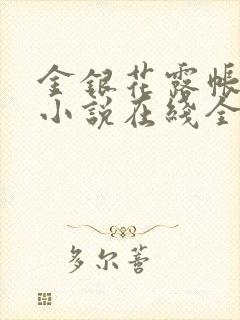 金银花露帐
小说在线全
多尔蒈